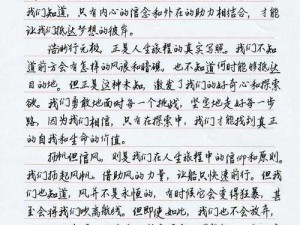 我们知道，只有内心的信念和外在的助力相结合，才能
让我们抵达梦想的彼岸。
海时行无极，正是人生旅程的真实写照。我们不知
道前方会有怎样的风浪和暗礁，也不知道何时能够抵达
目的地。但正是这种未知，激发了我们的好奇心和探索
欲。我们勇敢地面对每一个挑战，坚定地走好每一步
路，因为我们相信，只有在探索中，我们才能找到真正
的自我和生命的价值。
扬帆但信风，则是我们在人生旅程中的信仰和原则。
我们扬起风帆，借助风的力量，让船只快速前行。但我
们也知道，风并不是永恒的，有时候它会变得狂暴，甚
至会将我们吹离航线。但即使如此，我们也不会放弃，